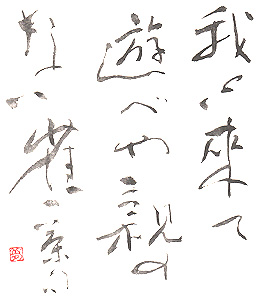 我と来て
遊べや親の
ない雀 一茶